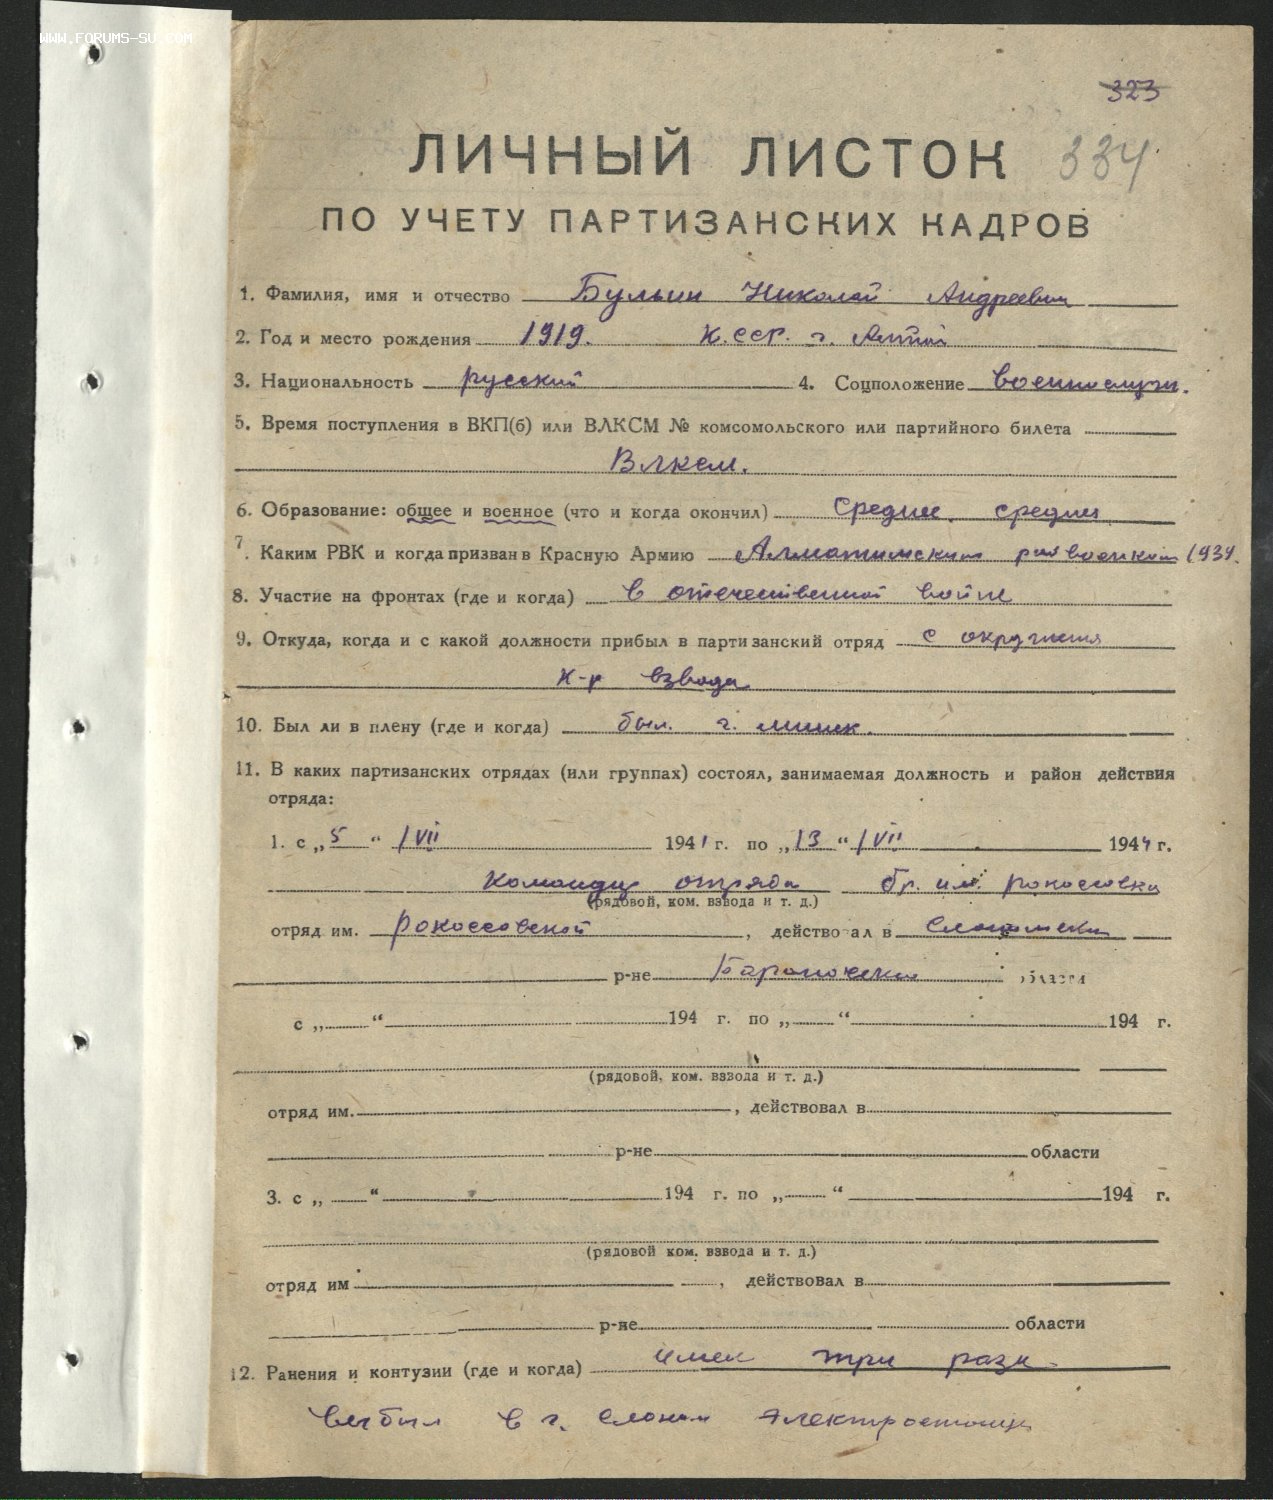 WWW.FORUMS-SU.COM
323
ЛИЧНЫЙ ЛИСТОК 334
ПО УЧЕТУ ПАРТИЗАНСКИХ КАДРОВ
1. Фамилия, имя и отчество Николай Андреевич
2. Год и место рождения 1919. К.ССР. г.
3. Национальность русский 4. Соцположение военнослуж.
5. Время поступления в ВКП(б) или ВЛКСМ № комсомольского или партийного билета
Влксм.
6. Образование: общее и военное (что и когда окончил) Среднее. средне
7. Каким РВК и когда призван в Красную Армию Алматинским райвоенкомат 1939.
8. Участие на фронтах (где и когда) в отечественной войне
9. Откуда, когда и с какой должности прибыл в партизанский отряд с окружения
к-р взвода
10. Был ли в плену (где и когда) был. г. минск.
11. В каких партизанских отрядах (или группах) состоял, занимаемая должность и район действия
отряда:
1. с „5“ /VII 1941 г. по „13“ /VII 1944 г.
командир отряда бр. им. рокосовски
(рядовой, ком. взвода и т. д.)
отряд им. рокоссовской, действовал в Слонимски
р-не Барановский области
с „ “ 194 г. по „ “ 194 г.
(рядовой, ком. взвода и т. д.)
отряд им. , действовал в
р-не области
3. с „ “ 194 г. по „ “ 194 г.
(рядовой ком. взвода и т. д.)
отряд им , действовал в
р-не области
12. Ранения и контузии (где и когда) имел три раза.
выбыл в г. Слоним электростанци